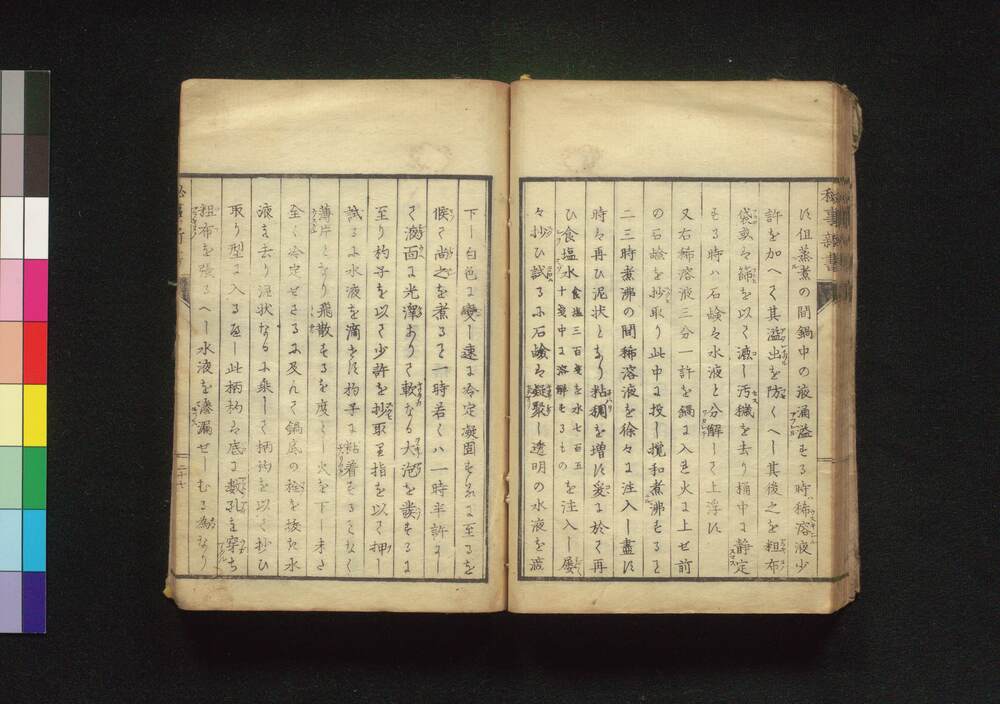 秘事新書
ハ但蒸煮の間鍋中の液涌溢する時稀溶液少
許を加へて其溢出を防くへし其後之を粗布
袋或は篩を以て漉し汚穢を去り桶中に静定
する時ハ石鹸は水液と分解して上浮す
又右稀溶液三分一許を鍋に入れ火に上せ前
の石鹸を抄取り此中に投し攪和煮沸すると
二三時煮沸の間稀溶液を徐々に注入し盡せハ
時は再ひ泥状となり粘稠を増す爰に於て再
ひ食塩水食塩三百目を水七百五十目中に溶解するものを注入し屡
々抄ひ試るに石鹸は凝聚し透明の水液を液
下し白色に変し速に冷定凝固するに至るを
候て尚之を煮ると一時若くハ一時半許にし
て液面に光澤ありて軟なる大泡を發するに
至り杓子を以て少許を抄取里指を以て押し
試るに水液を滴せす杓子に粘着するとなく
薄片となり飛散するを度とし火を下し未た
全く冷定せさるに及んて鍋底の栓を抜き水
液を去り泥状なるに乗して柄杓を以て抄ひ
取り型に入るへし此柄杓は底に数孔を穿ち
粗布を張るへし水液を滲漏せしむる為なり
二十七